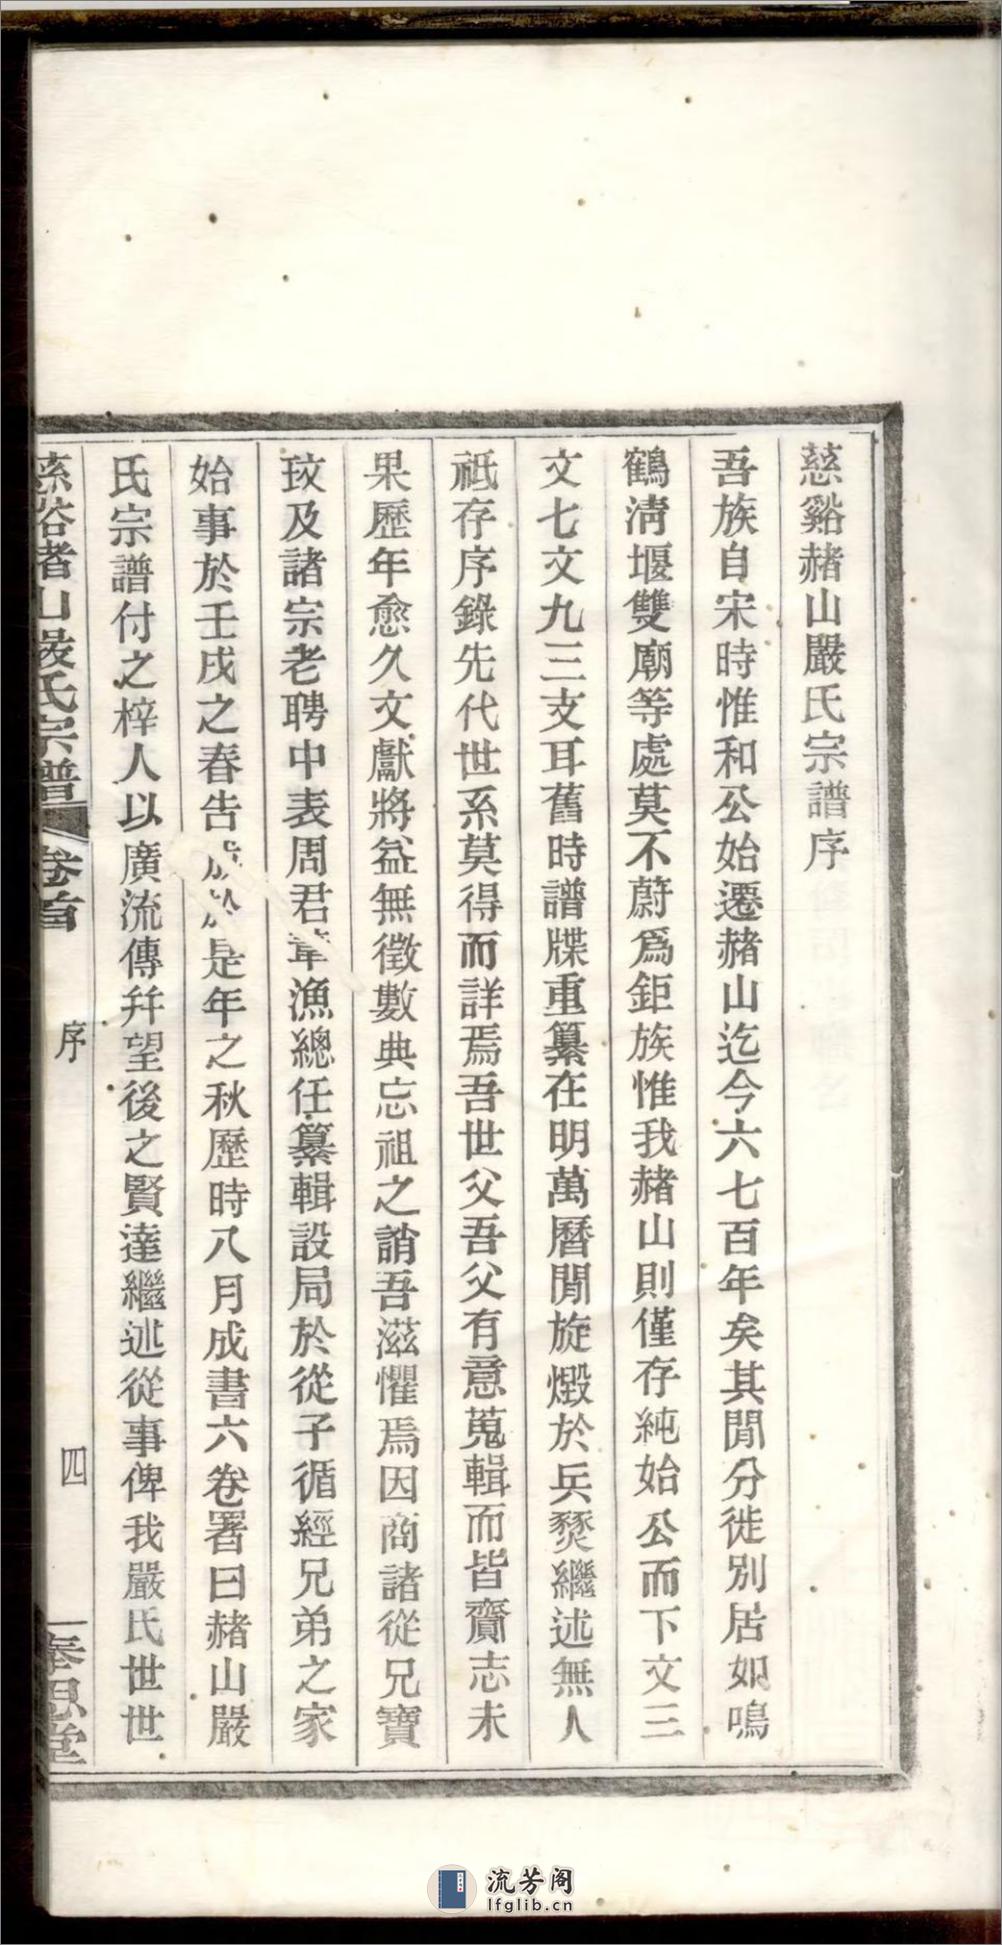 慈谿赭山嚴氏宗譜序
吾族自宋時惟和公始遷赭山迄今六七百年矣其閒分徙別居如鳴
鶴淸堰雙廟等處莫不蔚爲鉅族惟我赭山則僅存純始公而下文三
文七文九三支耳舊時譜牒重纂在明萬曆閒旋燬於兵燹繼述無人
祇存序錄先代世系莫得而詳焉吾世父吾父有意蒐輯而皆齎志未
果歷年愈久文獻將益無徵數典忘祖之誚吾滋懼焉因商諸從兄寶
玟及諸宗老聘中表周君葦漁總任纂輯設局於從子循經兄弟之家
始事於壬戌之春告成於是年之秋歷時八月成書六卷署曰赭山嚴
氏宗譜付之梓人以廣流傳幷望後之賢達繼述從事俾我嚴氏世世
慈谿赭山嚴氏宗譜 卷首 序 四 奉思堂
流芳阁
lfglib.cn